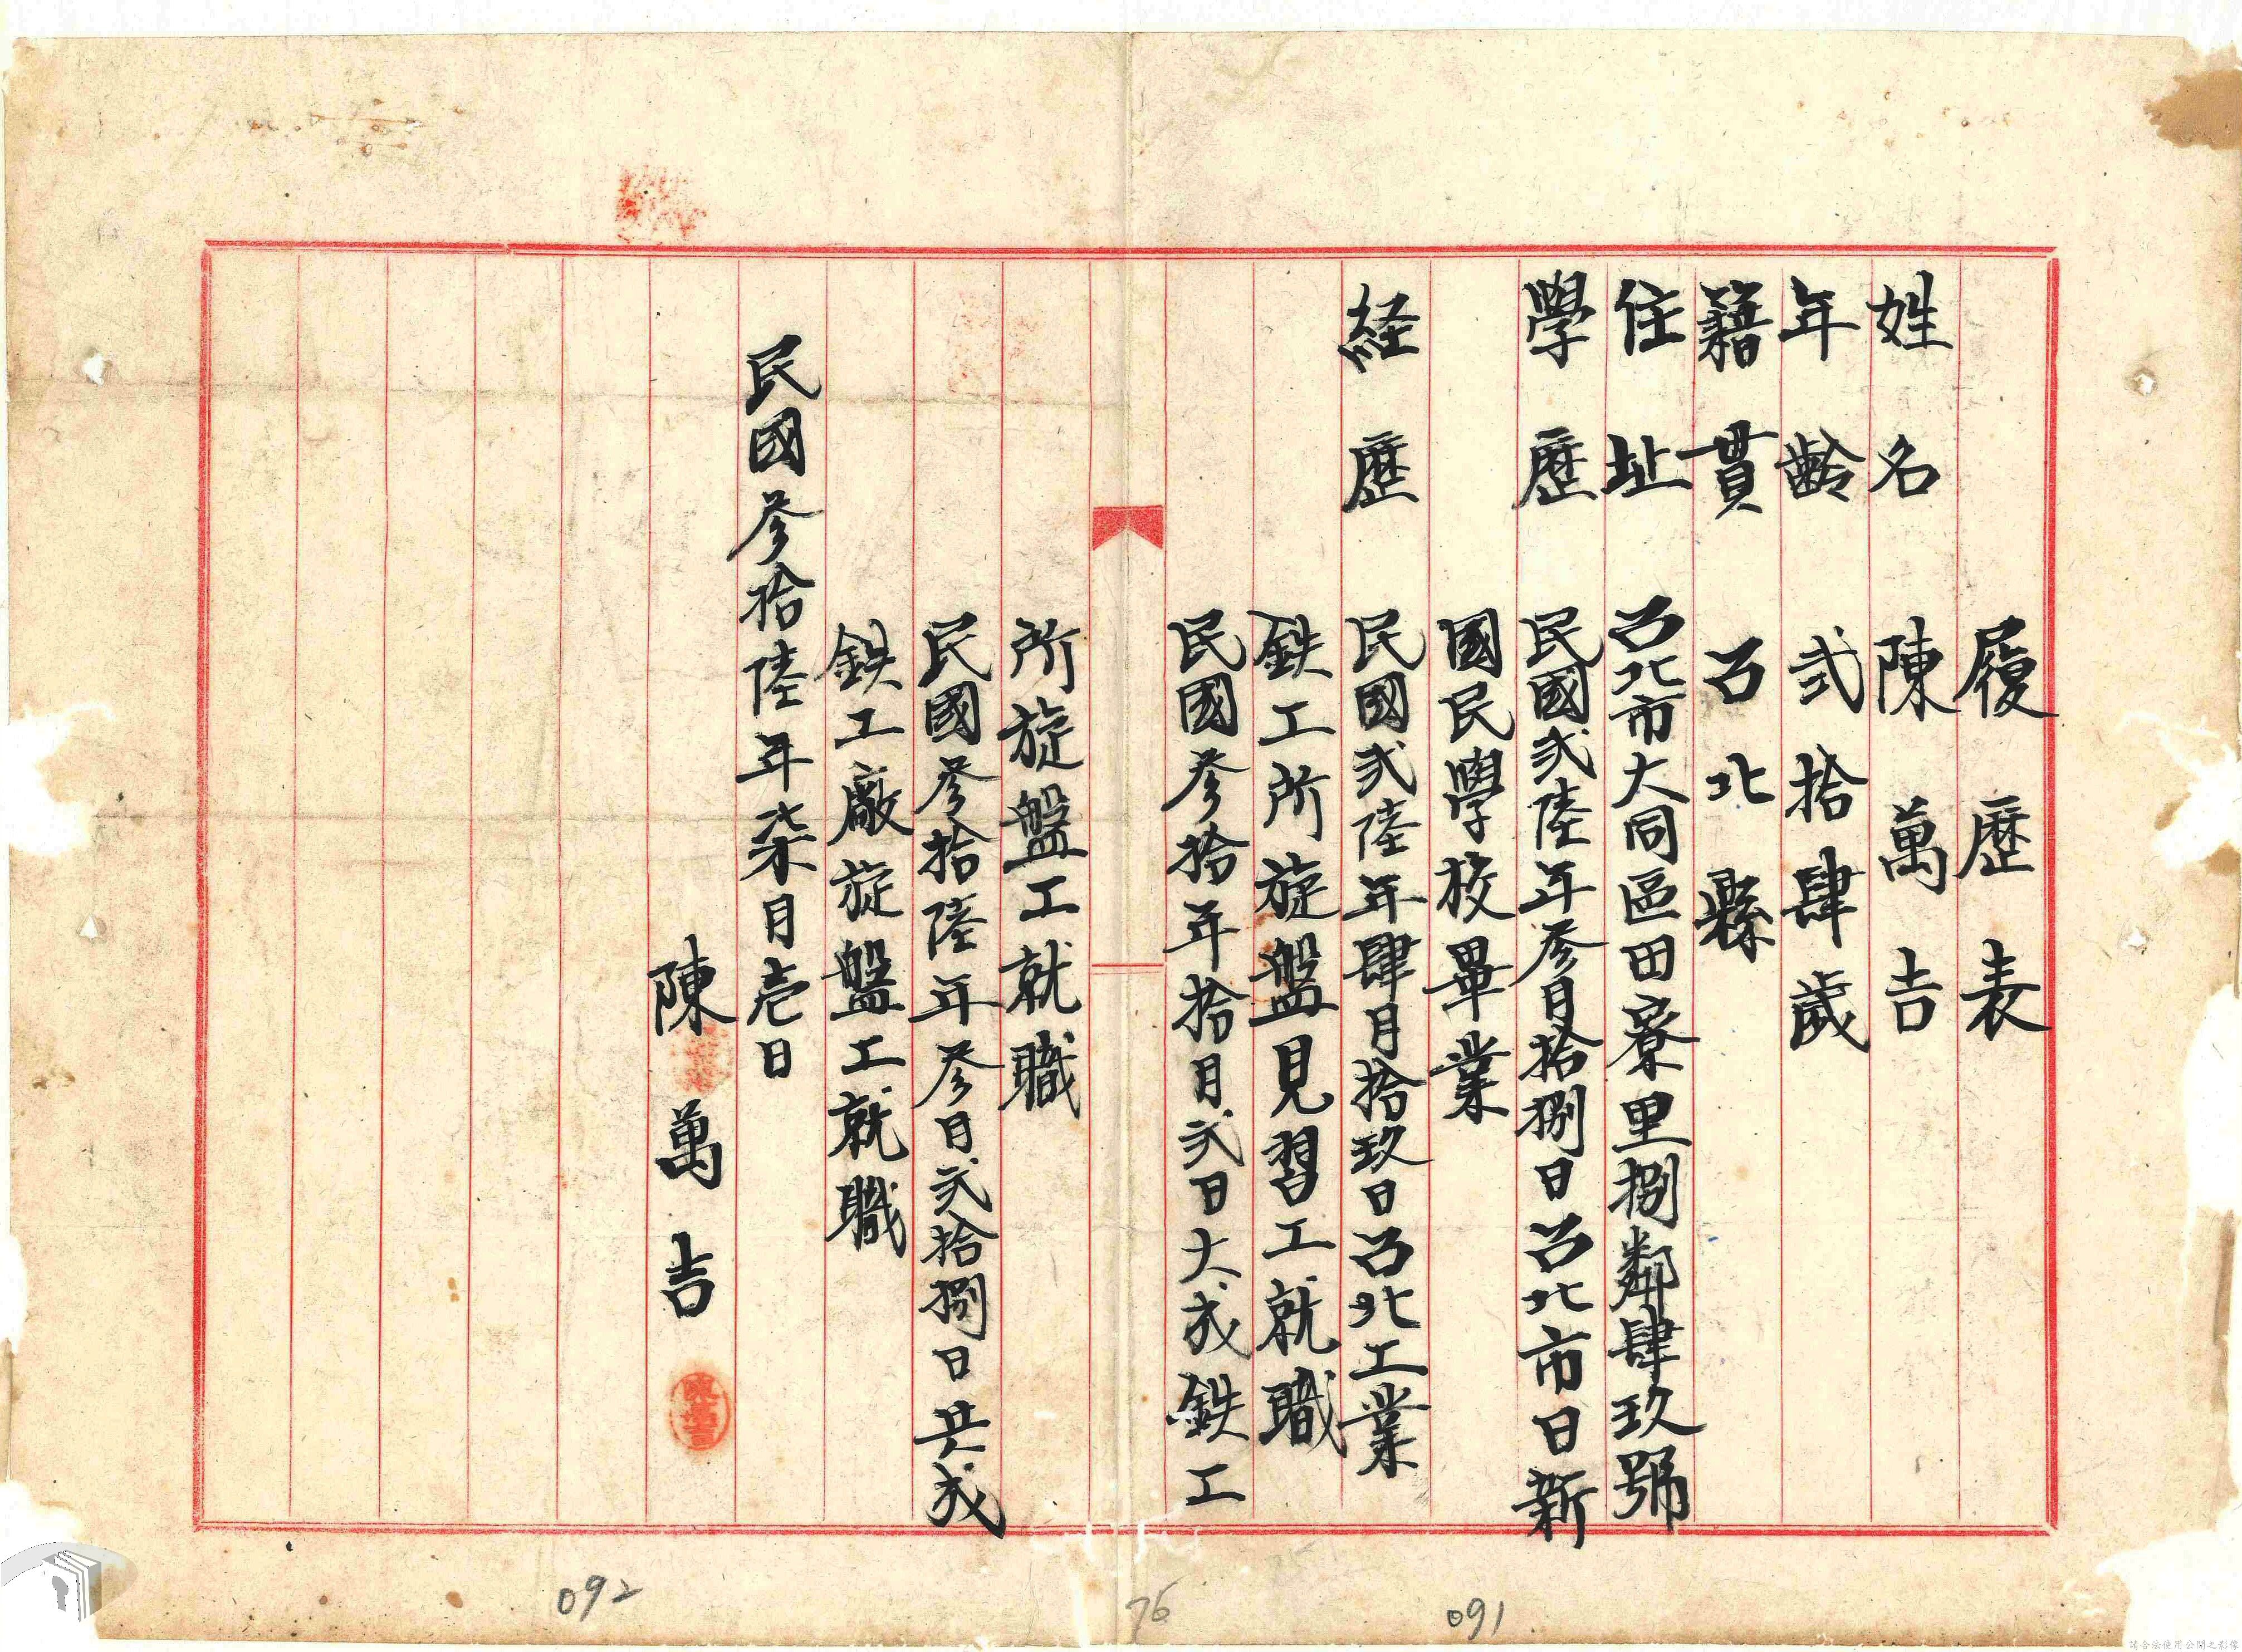 履歷表
姓名 陳萬吉
年齡 弍拾肆歲
籍貫 台北縣
住址 台北市大同區田寮里捌鄰肆玖號
學歷 民國弍陸年參月拾捌日台北市日新
國民學校畢業
経歷 民國弍陸年肆月拾玖日台北工業
鉄工所旋盤見習工就職
民國參拾年拾月弍日大成鉄工
所旋盤工就職
民國參拾陸年參日弍拾捌日共成
鉄工廠旋盤工就職
民國參拾陸年柒月壱日
陳萬吉
092
76
091
請合法使用公開之影像